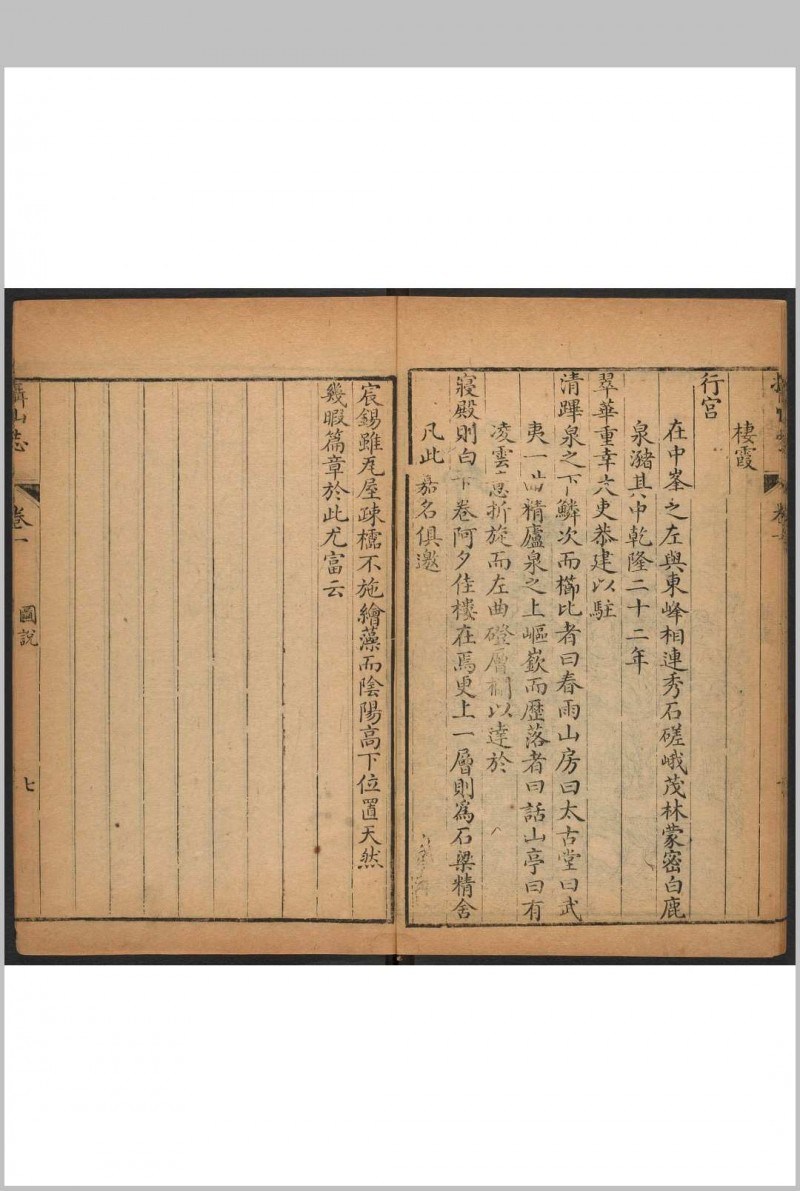 棲霞
行宮
在中峯之左與東峰相連秀石磋峨茂林蒙密白鹿
泉瀦其中乾隆二十二年
翠華重幸六吏恭建以駐
清蹕泉之下鱗次而櫛比者曰春雨山房曰太古堂曰武
夷一曲精廬泉之上嶇嶔而歷落者曰話山亭曰有
凌雲意折旋而左曲磴層欄以達於
寢殿則白下卷阿夕佳樓在焉更上一層則為石梁精舍
凡此嘉名俱邀
宸錫雖瓦屋疎櫺不施繪藻而陰陽高下位置天然
幾暇篇章於此尤富云
山志
卷一
圖說
七